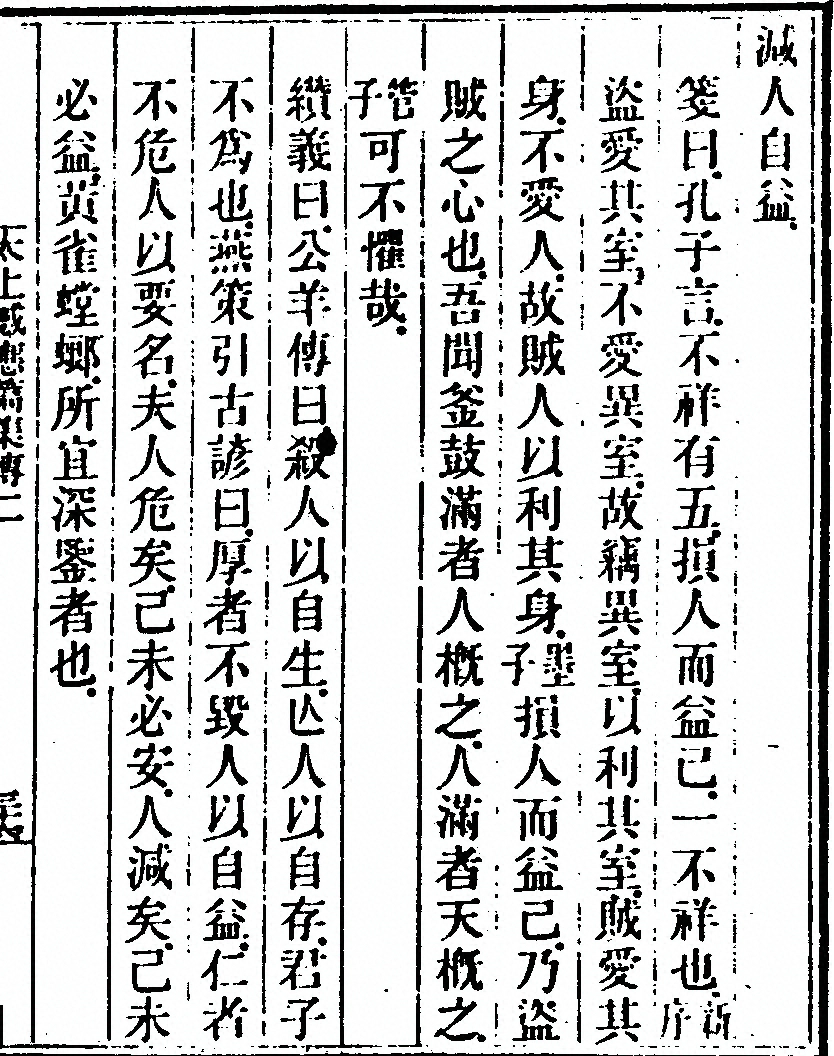 減人自益.
箋曰.孔子言.不祥有五.損人而益己.一不祥也.新序
盜愛其室.不愛異室.故竊異室.以利其室.賊愛其
身.不愛人.故賊人以利其身.墨子損人而益己.乃盜
賊之心也.吾聞釜鼓滿者人概之.人滿者天概之.
管子可不懼哉.
纘義曰.公羊傳曰.殺人以自生.亾人以自存.君子
不爲也.燕策引古諺曰.厚者不毀人以自益.仁者
不危人以要名.夫人危矣.己未必安.人減矣.己未
必益.黃雀螳螂.所宜深鑒者也.
太上感應篇集傳二